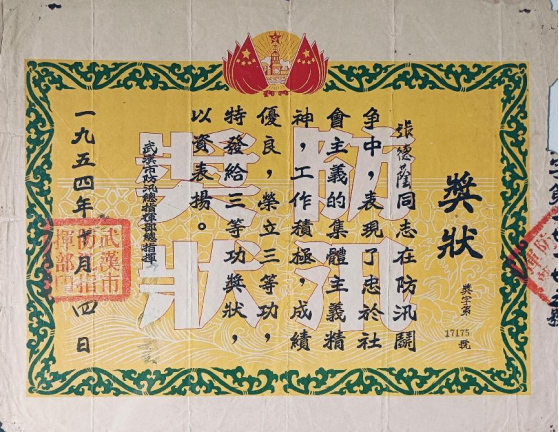 獎狀
獎字第17175號
張德蔭同志在防汛鬭
爭中，表現了忠於社
會主義的集體主義精
神，工作積極，成績
優良，榮立三等功，
特發給三等功獎狀，
以資表揚。
武漢市防汛總指揮部總指揮
一九五四年十月 四日
武漢市
防汛指
揮部
防汛
獎狀